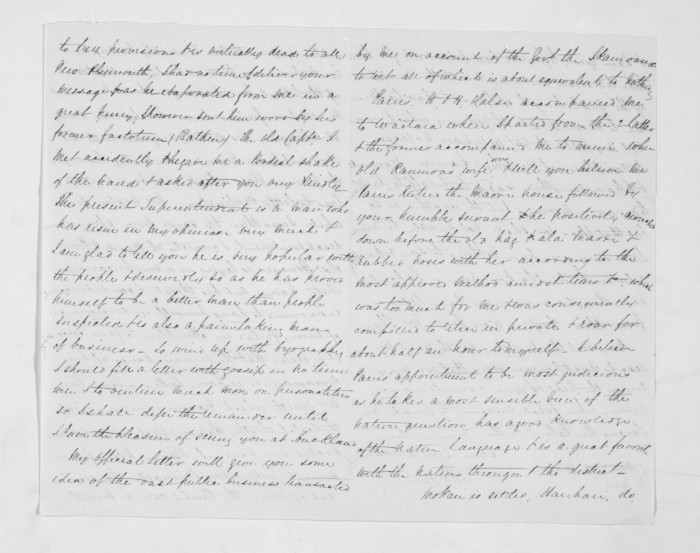 to buy provisions & is virtually dead to all
New Plymouth, I had no time to deliver your
message & as he evaporated from me in a
great hurry, I however sent him word by his
former factotum, Watkins. The old Captn I
met accidently & he gave me a cordial shake
of the hand & asked after you very kindly
The present Superintendent is a man who
has risen in my opinion very much &
I am glad to tell you he is very popular with
the people & deservedly so as he has proved
himself to be a better man than people
suspected & is also a painstaking man
of business - to wind up with byography
I should fill a letter with gossip in no time
were I to continue much more on personalities
so I shall defer the remainder until
I have the pleasure of seeing you at Auckland
My official letter will give you some
idea of the vast public business transacted
by me on account of the Govt.
to wit all of which is about equivalent to nothing
Parris, H & H. Halse accompanied me
to Waitara where I started from the 2 latter
& the former accompanied me to
old wife were & will you believe me
Parris enters the maori house followed by
your humble servant & he positively
down before the old hag & a la maori &
rubbed noses with her according to the
most approved method amidst tears &c. which
was too much for me & was consequently
compelled to clear in private & roar for
about half an hour to myself. I believe
Parris appointment to be most judicious
as he takes a most sensible view of the
native question, has a good knowledge
of the native language & is a great favorite
with the natives throughout the district -
Mokau is settled, do.